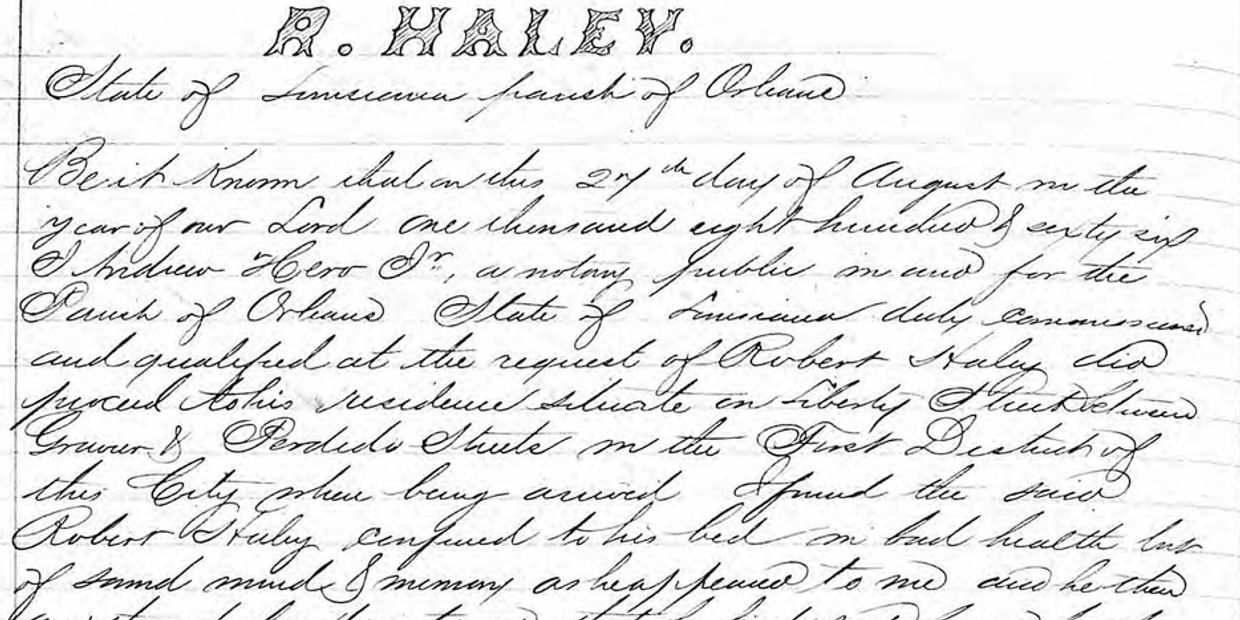 R. HALEY.
State of Louisiana parish of Orleans
Be it Known that on this 27th day of August in the
year of our Lord one thousand eight hundred & sixty six
I Andrew Hero Jr, a notary public in and for the
Parish of Orleans State of Louisiana duly commissioned
and qualified at the request of Robert Haley did
proceed to his residence situate on Liberty Street between
Gravier & Perdido Streets in the First District of
this City where being arrived I found the said
Robert Haley confined to his bed in bad health but
of sound mind & memory as he appeared to me and he then